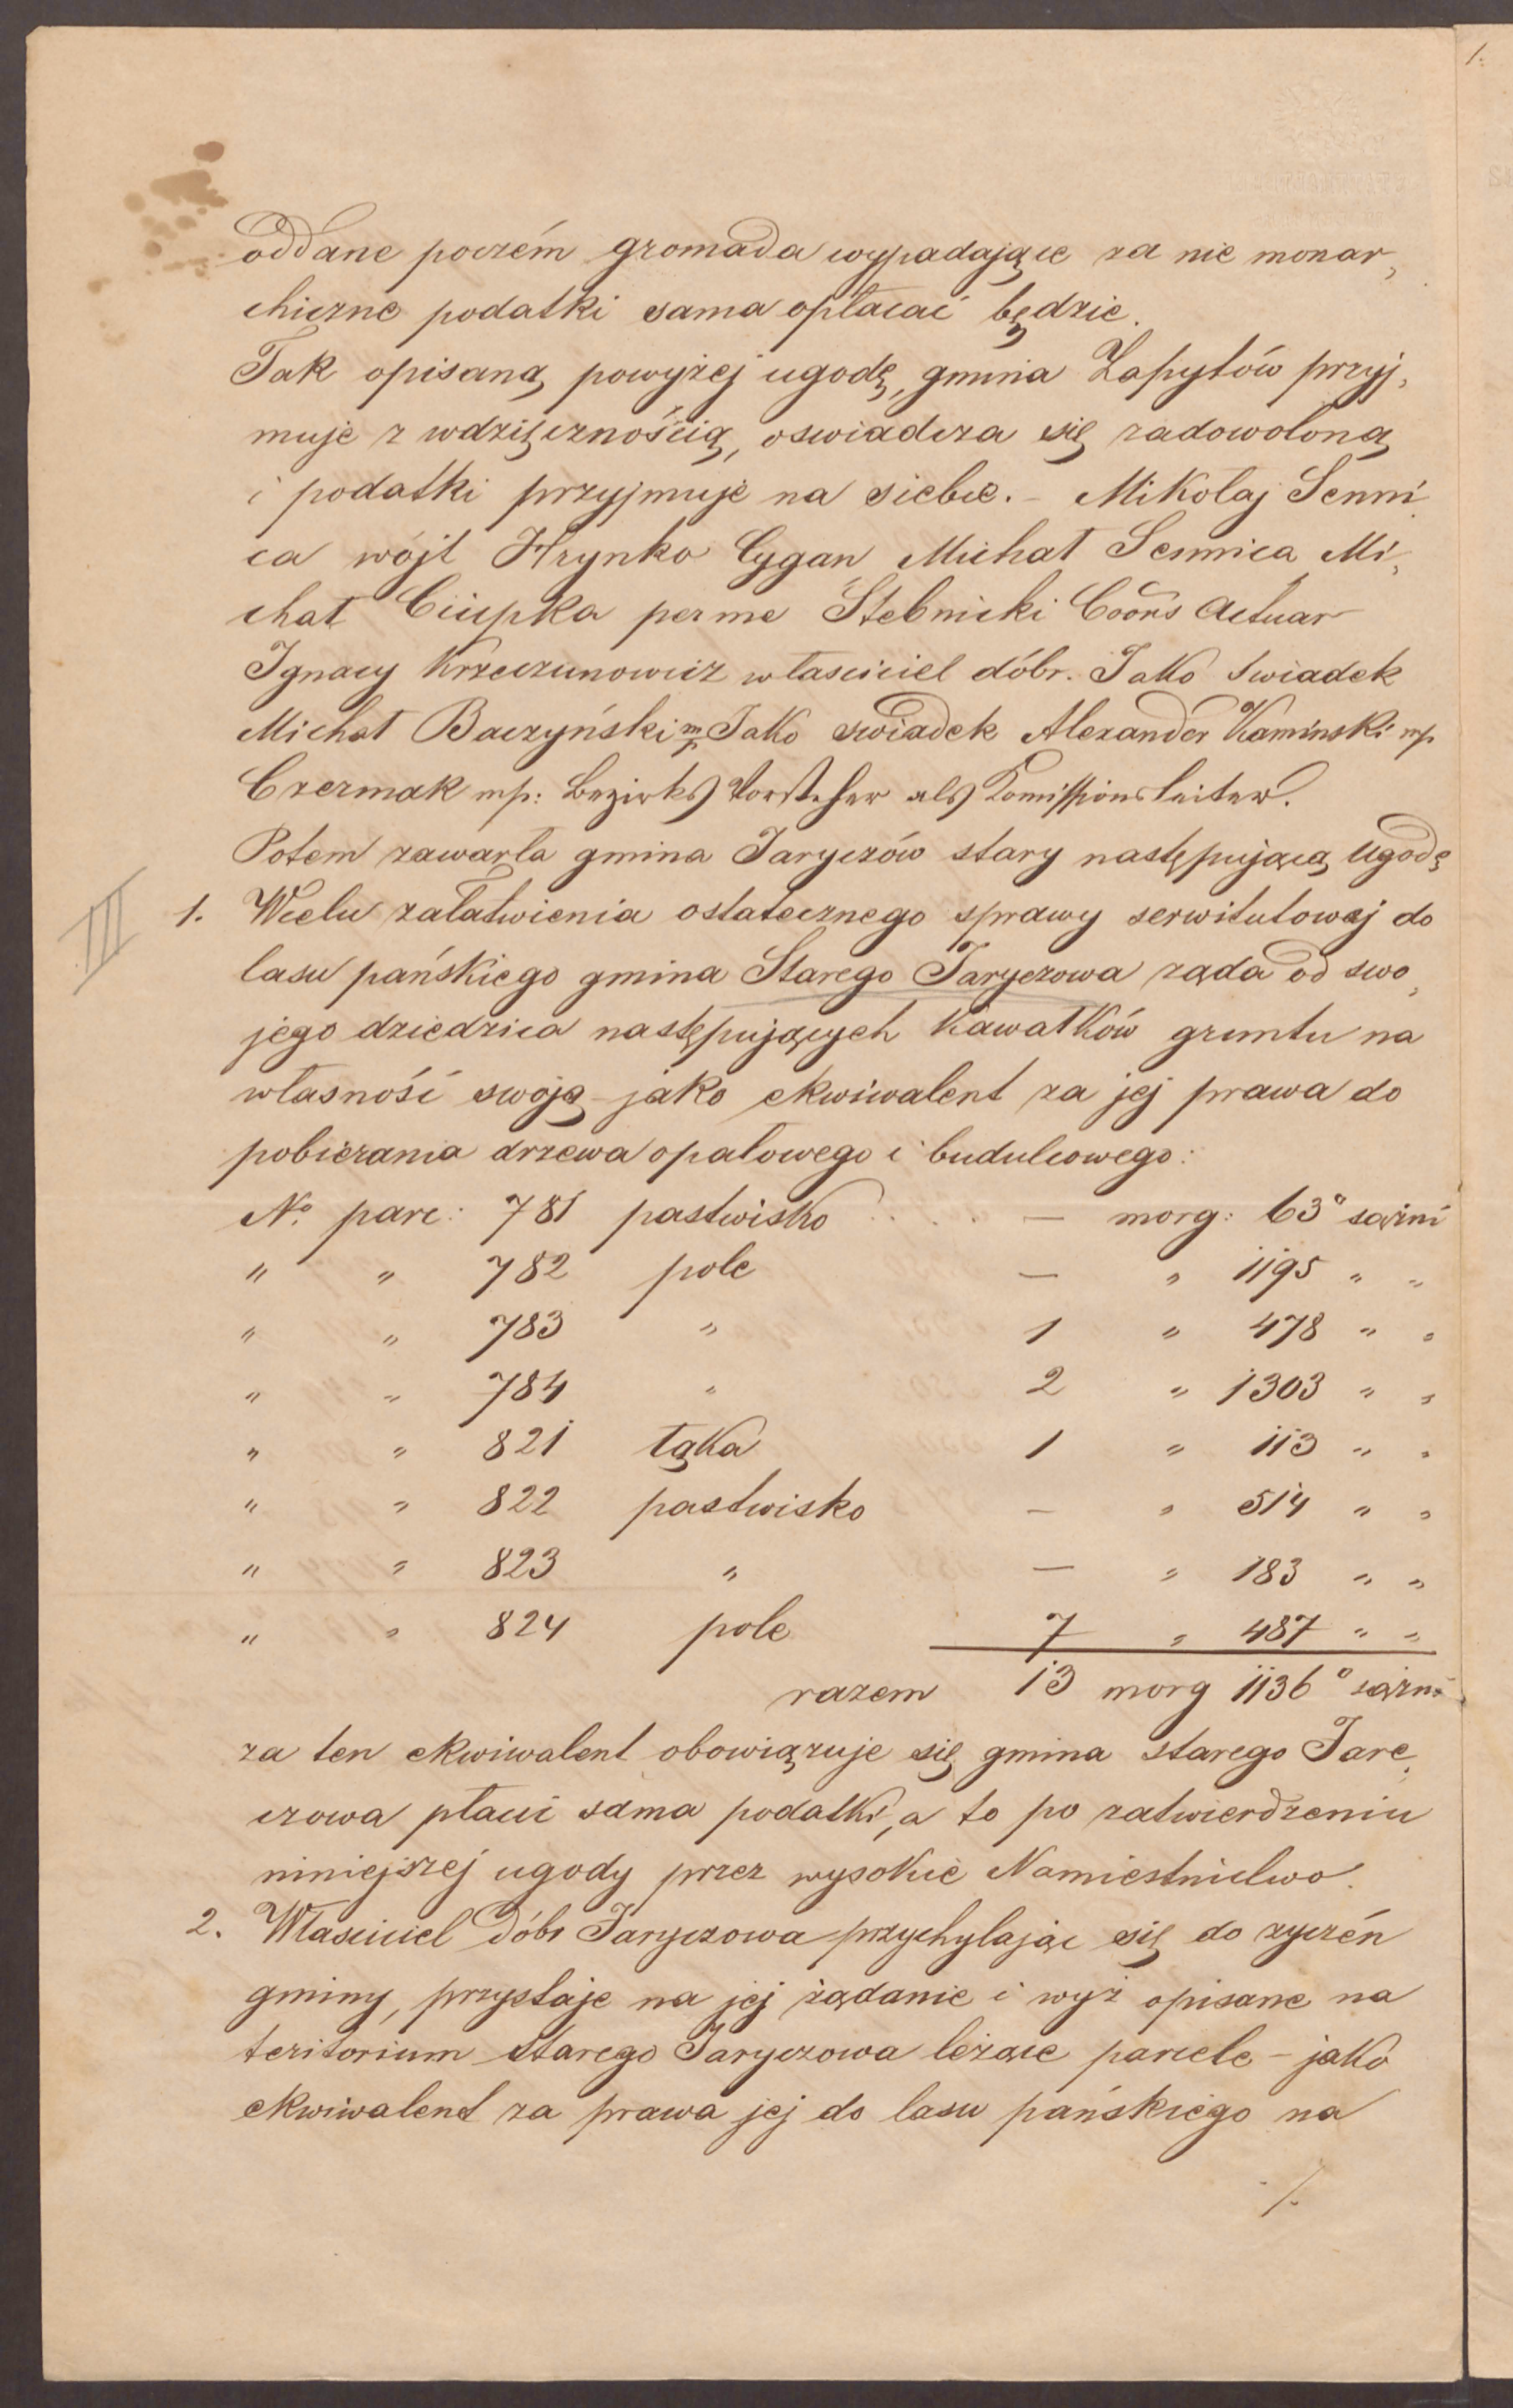 oddane poczém gromada wypadające za nie monar,
chiczne podatki sama opłacać będzie.
Tak opisaną powyżej ugodę, gmina Zapytów przyj,
muje z wdzięcznością, oswiadcza się zadowoloną
i podatki przyjmuje na siebie. – Mikolaj Senni
ca wójt Hrynko Cygan Michał Sennica Mi,
chał Ciupka per me Stebnicki Actuar
Ignacy Krzeczunowicz włascieciel dóbr. Jako swiadek
Michał Baczyński mp Jako swiadek Alexander Kaminski mp
Czermak mp: Bezirks Vorsteher als Komissionsleiter.
Potem zawarła gmina Jaryczów stary następującą Ugodę
III
1. Wcelu załatwienia ostatecznego sprawy serwitutowej do
lasu pańskiego gmina Starego Jaryczowa ząda od swo,
jego dziedzica następujących Kawałków gruntu na
własność swoją – jako ekwiwalent za jej prawa do
pobierania drzewa opałowego i budulcowego:
No parc: 781 pastwisko . . . . . — morg: 63° sążni
" " 782 pole — " 1195 " "
" " 783 " 1 " 478 " "
" " 784 " 2 " 1303 " "
" " 821 łąka 1 " 113 " "
" " 822 pastwisko — " 514 " "
" " 823 " — " 183 " "
" " 824 pole 7 " 487 " "
razem 13 morg 1136° sążni
za ten ekwiwalent obowiązuje się gmina starego Jare,
czowa płacić sama podatki, a to po zatwierdzeniu
niniejszej ugody przez wysokie Namiestnictwo.
2. Włascieciel dóbr Jaryczowa przychylając się do zyczén
gminy, przystaje na jej żądanie i wyż opisane na
teritorium starego Jaryczowa leżące parcele – jako
ekwiwalent za prawa jej do lasu pańskiego na
./.